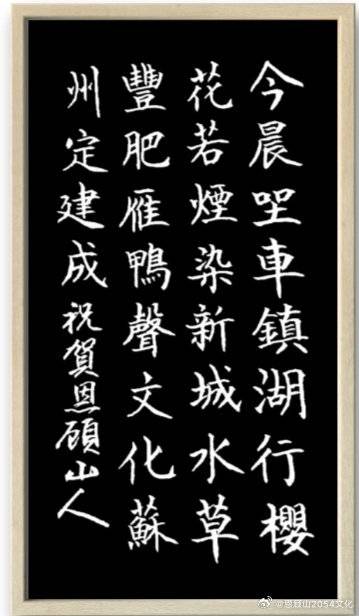 今晨坐車鎮湖行櫻
花若煙染新城水草
豐肥雁鴨聲文化蘇
州定建成祝賀恩顧山人
@恩顧山2054文化